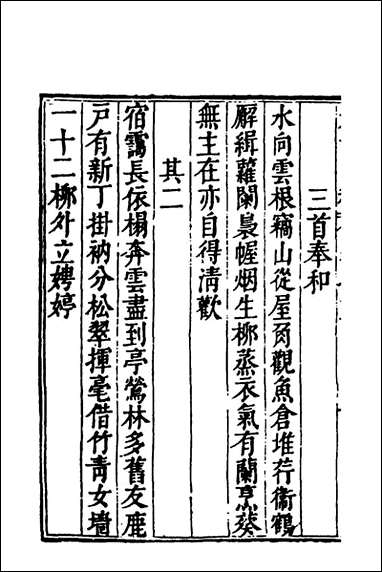 三首奉和
水向雲根竊山從屋角觀魚倉堆荇衞鶴
解緝蘿闌梟幄烟生桺蒸衣氣有蘭烹葵
無主在亦自得清歡
其二
宿靄長依榻奔雲盡到亭鶯林多舊友鹿
戸有新丁掛衲分松翠揮毫借竹青女墻
一十二桺外立娉婷